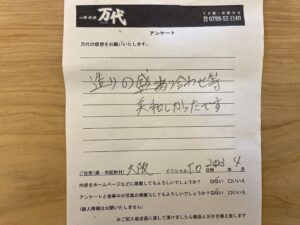 万代
ご予約・お問合せ
☎0799-52-1140
アンケート
万代の感想をお願いいたします。
造りの盛り合わせ等
美味しかったです
ご住所(県・市区町村) 大阪 イニシャル I.O 2023年 4月
内容をホームページなどに掲載してもよろしいでしょうか? □はい □いいえ
アンケートと食事中の写真の掲載してもよろしいでしょうか? □はい □いいえ
(個人情報は公開いたしません)
※ご記入後会計に渡して頂けましたら粗品とお引き換え致します